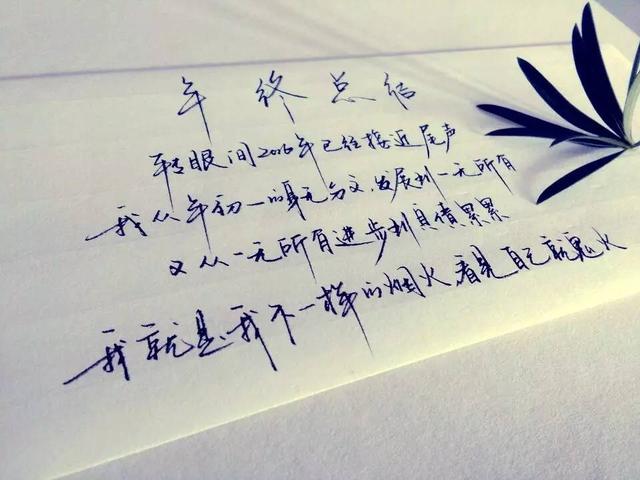 年终总结
转眼间2016年已经接近尾声
我从年初一的身无分文,发展到一无所有
又从一无所有进步到负债累累
我就是我不一样的烟火看见自己就恼火